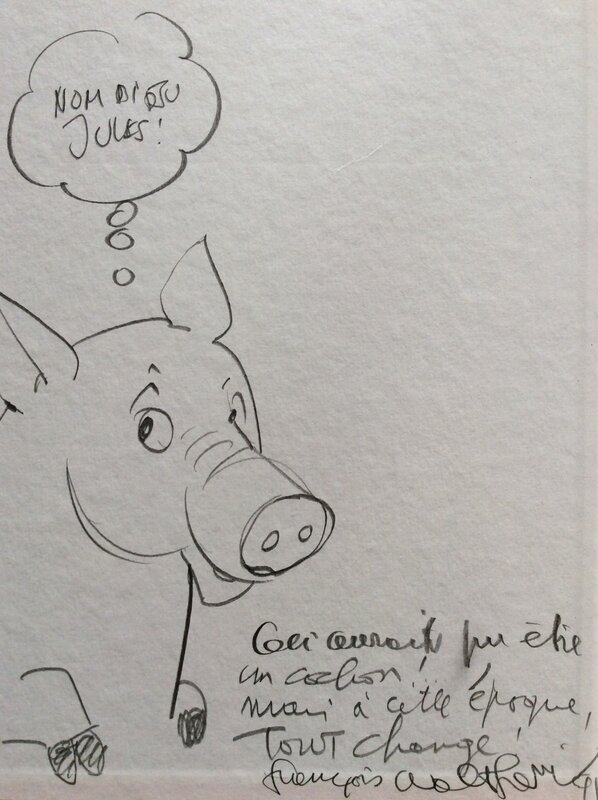 NOM DI DJU
JULES!
Ceci aurait pu être
un cochon!
mais à cette époque,
TOUT change!
François Walthéry